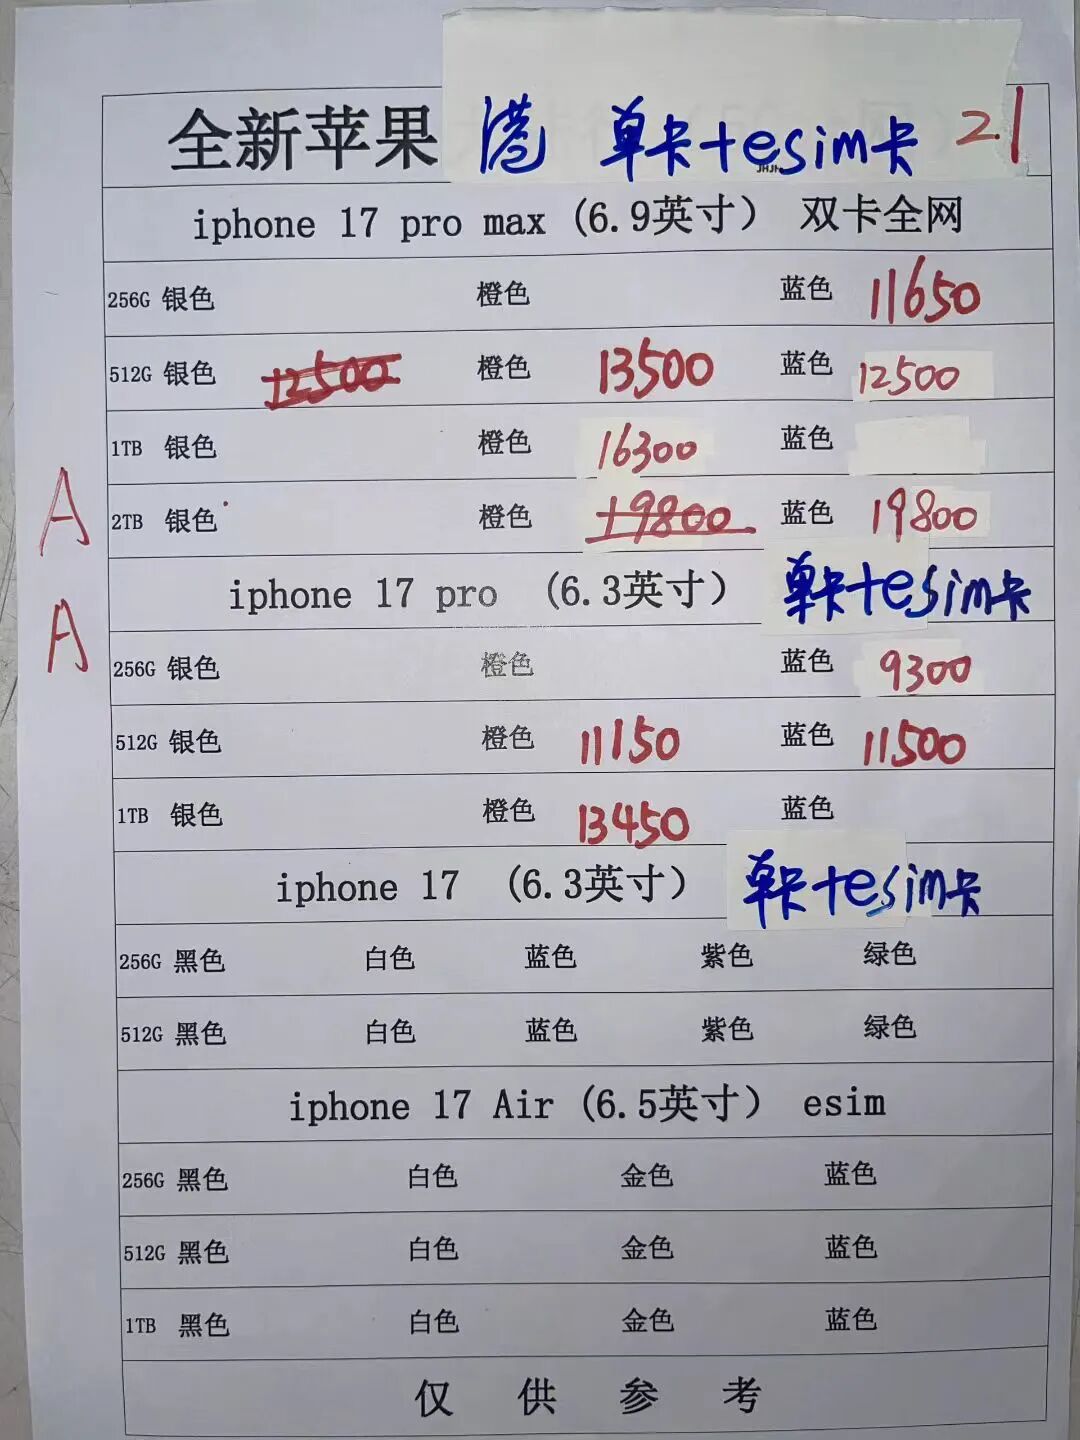 全新苹果 港 单卡+esim卡 2.1
JHJH
iphone 17 pro max (6.9英寸) 双卡全网
256G 银色 橙色 蓝色 11650
512G 银色 12500 橙色 13500 蓝色 12500
1TB 银色 橙色 16300 蓝色
A 2TB 银色 橙色 19800 蓝色 19800
iphone 17 pro (6.3英寸) 单卡+esim卡
A 256G 银色 橙色 蓝色 9300
512G 银色 橙色 11150 蓝色 11500
1TB 银色 橙色 13450 蓝色
iphone 17 (6.3英寸) 单卡+esim卡
256G 黑色 白色 蓝色 紫色 绿色
512G 黑色 白色 蓝色 紫色 绿色
iphone 17 Air (6.5英寸) esim
256G 黑色 白色 金色 蓝色
512G 黑色 白色 金色 蓝色
1TB 黑色 白色 金色 蓝色
仅供参考